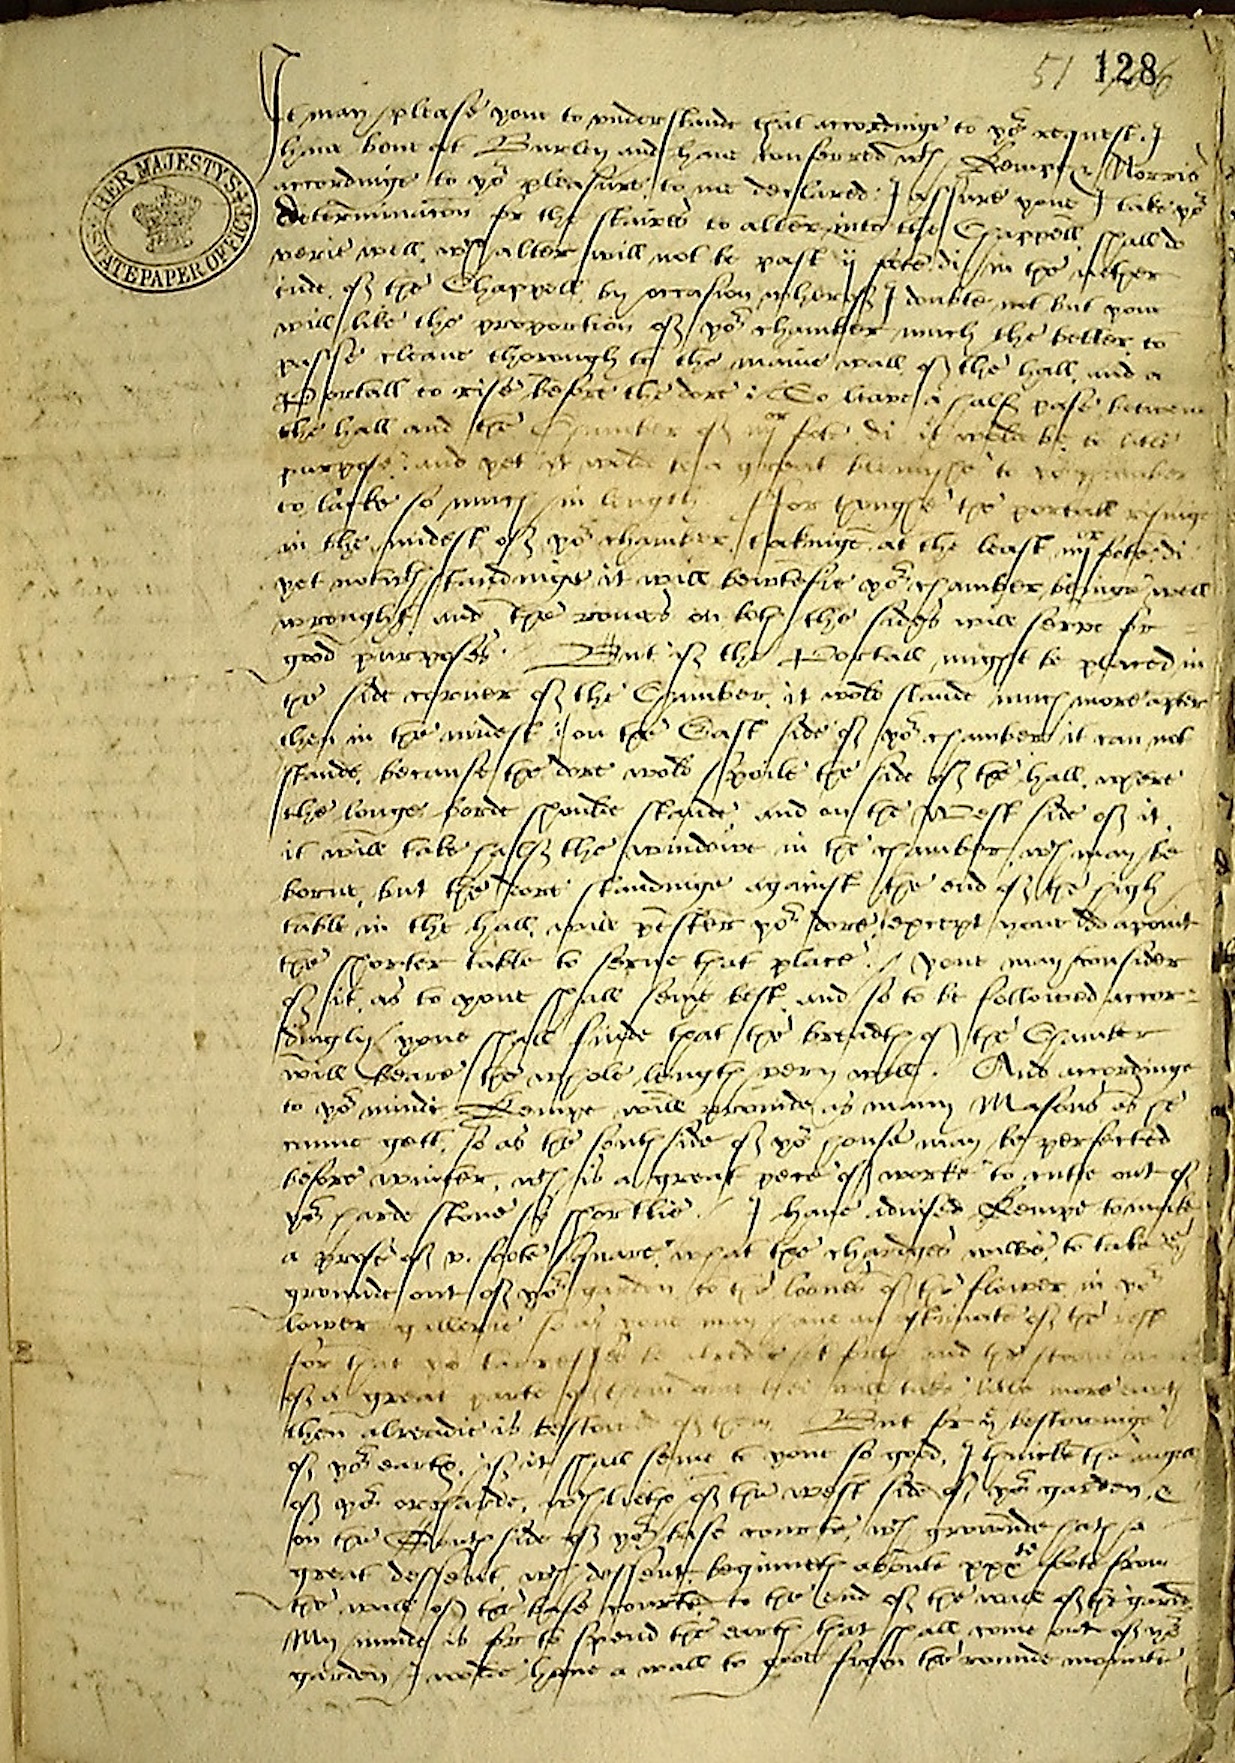 51 128
HER MAJESTY'S STATE PAPER OFFICE
It may please youe to understande that accordinge to yor request. I
have bene at Burley and have conferred wth Kempe & Norris
accordinge to yor pleasure to me declared: I assure youe I take yor
determinacon for the staires to alter into the Chappell shall do
verie well, wch alter will not be past ij fote di in the nether
ende of the Chappell, by occasion wherof I doubte not but youe
will like the proportion of yor chamber much the better to
passe cleane thorough to the maine wall of the hall, and a
Portall to rise before the dore: To leave a half pase betwene
the hall and the Chamber of iiijor fote di it wolde be to litle
purpose: and yet it wolde be a great blemyshe to yor chamber
to lacke so much in length. For thoughe the portall risinge
in the midest of yor chamber, takinge at the least iiijor fote di
yet notwthstandinge it will bewtefie yor chamber beinge well
wrought, and the romes on both the sides will serve for
good purposes. But if the Portall might be placed in
the side corner of the Chamber, it wold stande much more apter
then in the midest: on the East side of yor chamber it can not
stande, because the dore wold spoile the side of the hall, where
the longe borde shoulde stande, and on the West side of it,
it will take half the windowe in the chamber, wch may be
borne, but the dore standinge against the end of the high
table in the hall, will pester yor dore, except youe do apoint
the shorter table to serve that place. youe may consider
of it, as to youe shall seme best, and so to be followed accor-
dingly, youe shall finde that the breadth of the Chamber
will beare the whole length very well. And accordinge
to yor minde Kempe will provide as many Masons as he
canne gett, so as the south side of yor house may be perfected
before winter, wch is a great pece of worke to cutte out of
yor harde stone so shortlie. I have advised Kempe to make
a profe of v. foote square, what the chardges wilbe, to take the
grounde out of yor garden to the levell of the flower in yor
lower gallerie so as youe may have an estimate of the rest
for that yor be alredie set forth and the
of a great parte of them and thei will take litle more earth
then alreadie is bestowed of them. But for ye bestowinge
of yor earth, if it shall seme to youe so good, I thincke the
of yor orcharde, wch lieth of the west side of yor garden, &
on the South side of yor base courte, wch grounde hath a
great dessent, wch dessent beginneth aboute xxxte fote from
the wall of the base courte, to the end of the wall of the garden
My minde is for to spend the earth that shall come out of yor
garden I wolde have a wall to goe from the rounde mounte